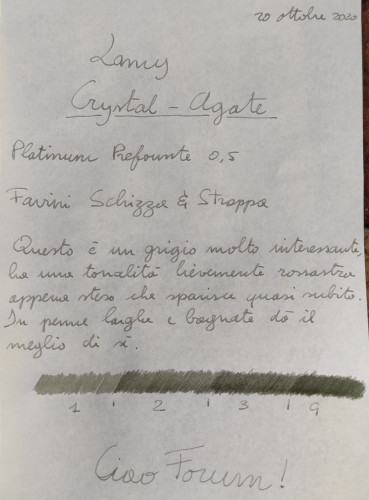 20 ottobre 2020
Lamy
Crystal - Agate
Platinum Prefounte 0,5
Favini Schizza & Strappa
Questo è un grigio molto interessante,
ha una tonalità lievemente rossastra
appena steso che sparisce quasi subito.
In penne larghe e bagnate dà il
meglio di sé.
1 2 3 4
Ciao Forum!